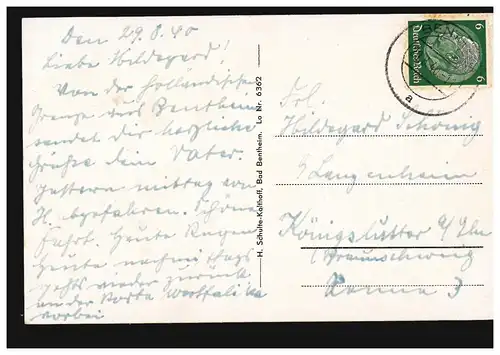 Den 29.8.40
Liebe Hildegard!
Von der Holländischen
Grenze aus Bentheim
sendet dir herzliche
Grüße dein Vater.
Gestern mittag von
H. abgefahren. Schöne
Fahrt. Heute Regen
Heute nachmittags
geht's wieder zurück
an der Porta Westfalika
vorbei
H. Schulte-Kolthoff, Bad Bentheim. Lo Nr. 6362
6
Deutsches Reich
6
a
Frl.
Hildegard
Königslutter
Braunschweig